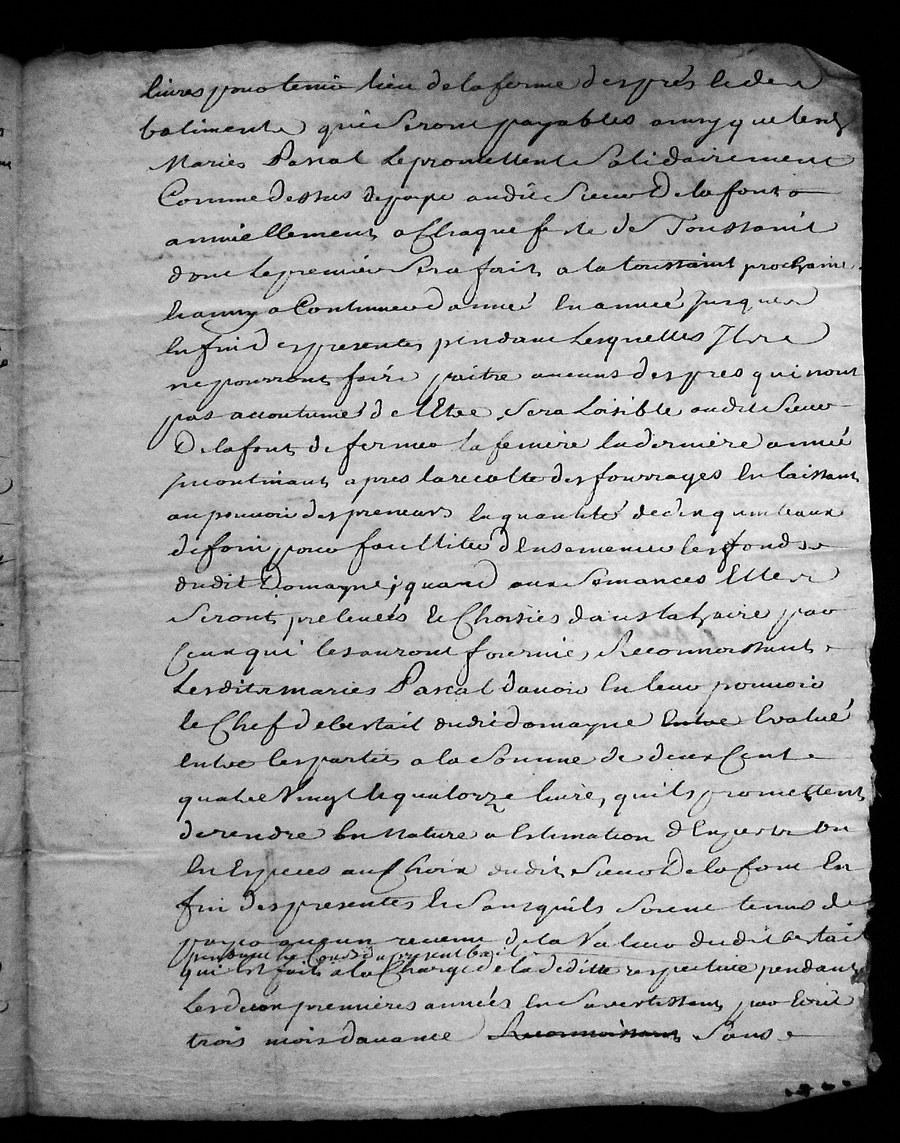 livres pour tenir lieu de la ferme des prés et des
batiments qui seront payables ainsy que les dits
Mariés Pascal le promettent Solidairement
Comme dessus de payer audit Sieur Delafont
annuellement a Chaque feste de Toussaint
dont le premier sera fait a la toussaint prochaine
et ainsy a Continuer d'année en année jusques
en fin des presentes pendant lesquelles Ils
ne pourront faire paitre aucuns des pres qui n'ont
pas accoutumé de l'Etre, sera Loisible audit Sieur
Delafont de fermer la derniere année
incontinant apres la recolte des fourrages En laissant
au pouvoir des preneurs la quantité de quinteaux
de foin pour faciliter d'Ensemencer les fonds
dudit Domayne; quand aux Semances Elles
Seront prelevées et Choisies dans la haire par
Ceux qui les auront fournies, Reconnoissant
Lesdits mariés Pascal d'avoir En leur pouvoir
le Chef de bestail dudit domayne Evalué
entre les parties a la Somme de deux Cent
quatre Vingt et quatorze livre, qu'ils promettent
de rendre En Nature a Estimation d'Experts ou
En Especes au Choix dudit Sieur Delafont En
fin des presentes et Sans qu'ils Soient tenus de
payer aucun revenu de la Valeur dudit bestail
pendant le Cours du present bail
qui Est fait a la Charge de la deditte respective pendant
Les deux premieres années En S'avertissant par Ecrit
trois mois d'avance Reconnoissant Sans